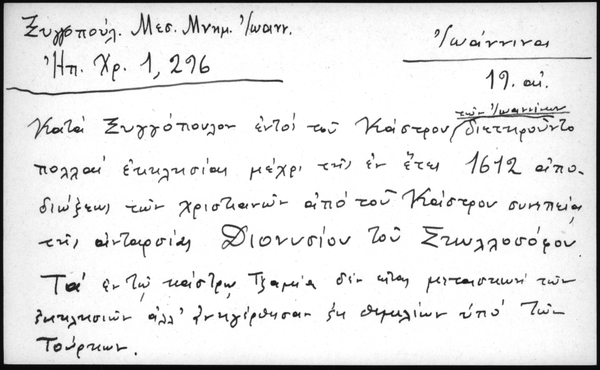 Ξυγγοπούλ. Μεσ. Μνημ. Ἰωανν.
Ἠπ. Χρ. 1, 296
Ἰωάννινα
19. αἰ.
τῶν Ἰωαννίνων
Κατά Ξυγγόπουλον ἐντός τοῦ Κάστρου διετηροῦντο
πολλαί ἐκκλησίαι μέχρι τῆς ἐν ἔτει 1612 ἀπο-
διώξεως τῶν χριστιανῶν ἀπό τοῦ Κάστρου συνεπείᾳ
τῆς ἀνταρσίας Διονυσίου τοῦ Σκυλλοσόφου.
Τά ἐν τῷ κάστρῳ Τζαμία δέν εἶναι μετασκευή τῶν
ἐκκλησιῶν ἀλλ' ἀνηγέρθησαν ἐκ θεμελίων ὑπό τῶν
Τούρκων.